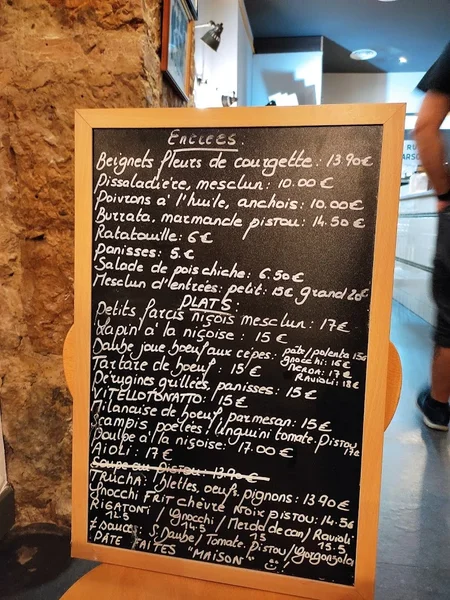 ENTREES:
Beignets fleurs de courgette: 13.90€
Pissaladière, mesclun: 10.00€
Poivrons a' l'huile, anchois: 10.00€
Burrata, marmande pistou: 14.50€
Ratatouille: 6€
Panisses: 5.€
Salade de pois chiche: 6.50€
Mesclun d'entrées: petit: 15€ grand 20€
PLATS:
Petits farcis niçois mesclun: 17€
Lapin a' la niçoise: 15€
Daube joue boeuf aux cepes: pate/polenta 15€
gnocchi: 16€
MERDA: 17€
RAVIOLI: 18€
Tartare de boeuf: 15€
Perugines grillées, panisses: 15€
VITELLOTONATTO: 15€
Milanaise de boeuf, parmesan: 15€
Scampis poêlées! Linguini tomate. Pistou 17€
Poulpe a' la niçoise: 17.00€
Aïoli: 17€
Soupe au Pistou: 13.90€
TRUCHA: blettes, oeufs, pignons: 13.90€
Gnocchi FRIT chèvre Noix PISTOU: 14.5€
RIGATONI / Gnocchi / Merda de can / Ravioli
12.5 14.5 15 15.5
≠ sauces: Daube / Tomate. Pistou / Gorgonzola
PATE FAITES "MAISON"
RU